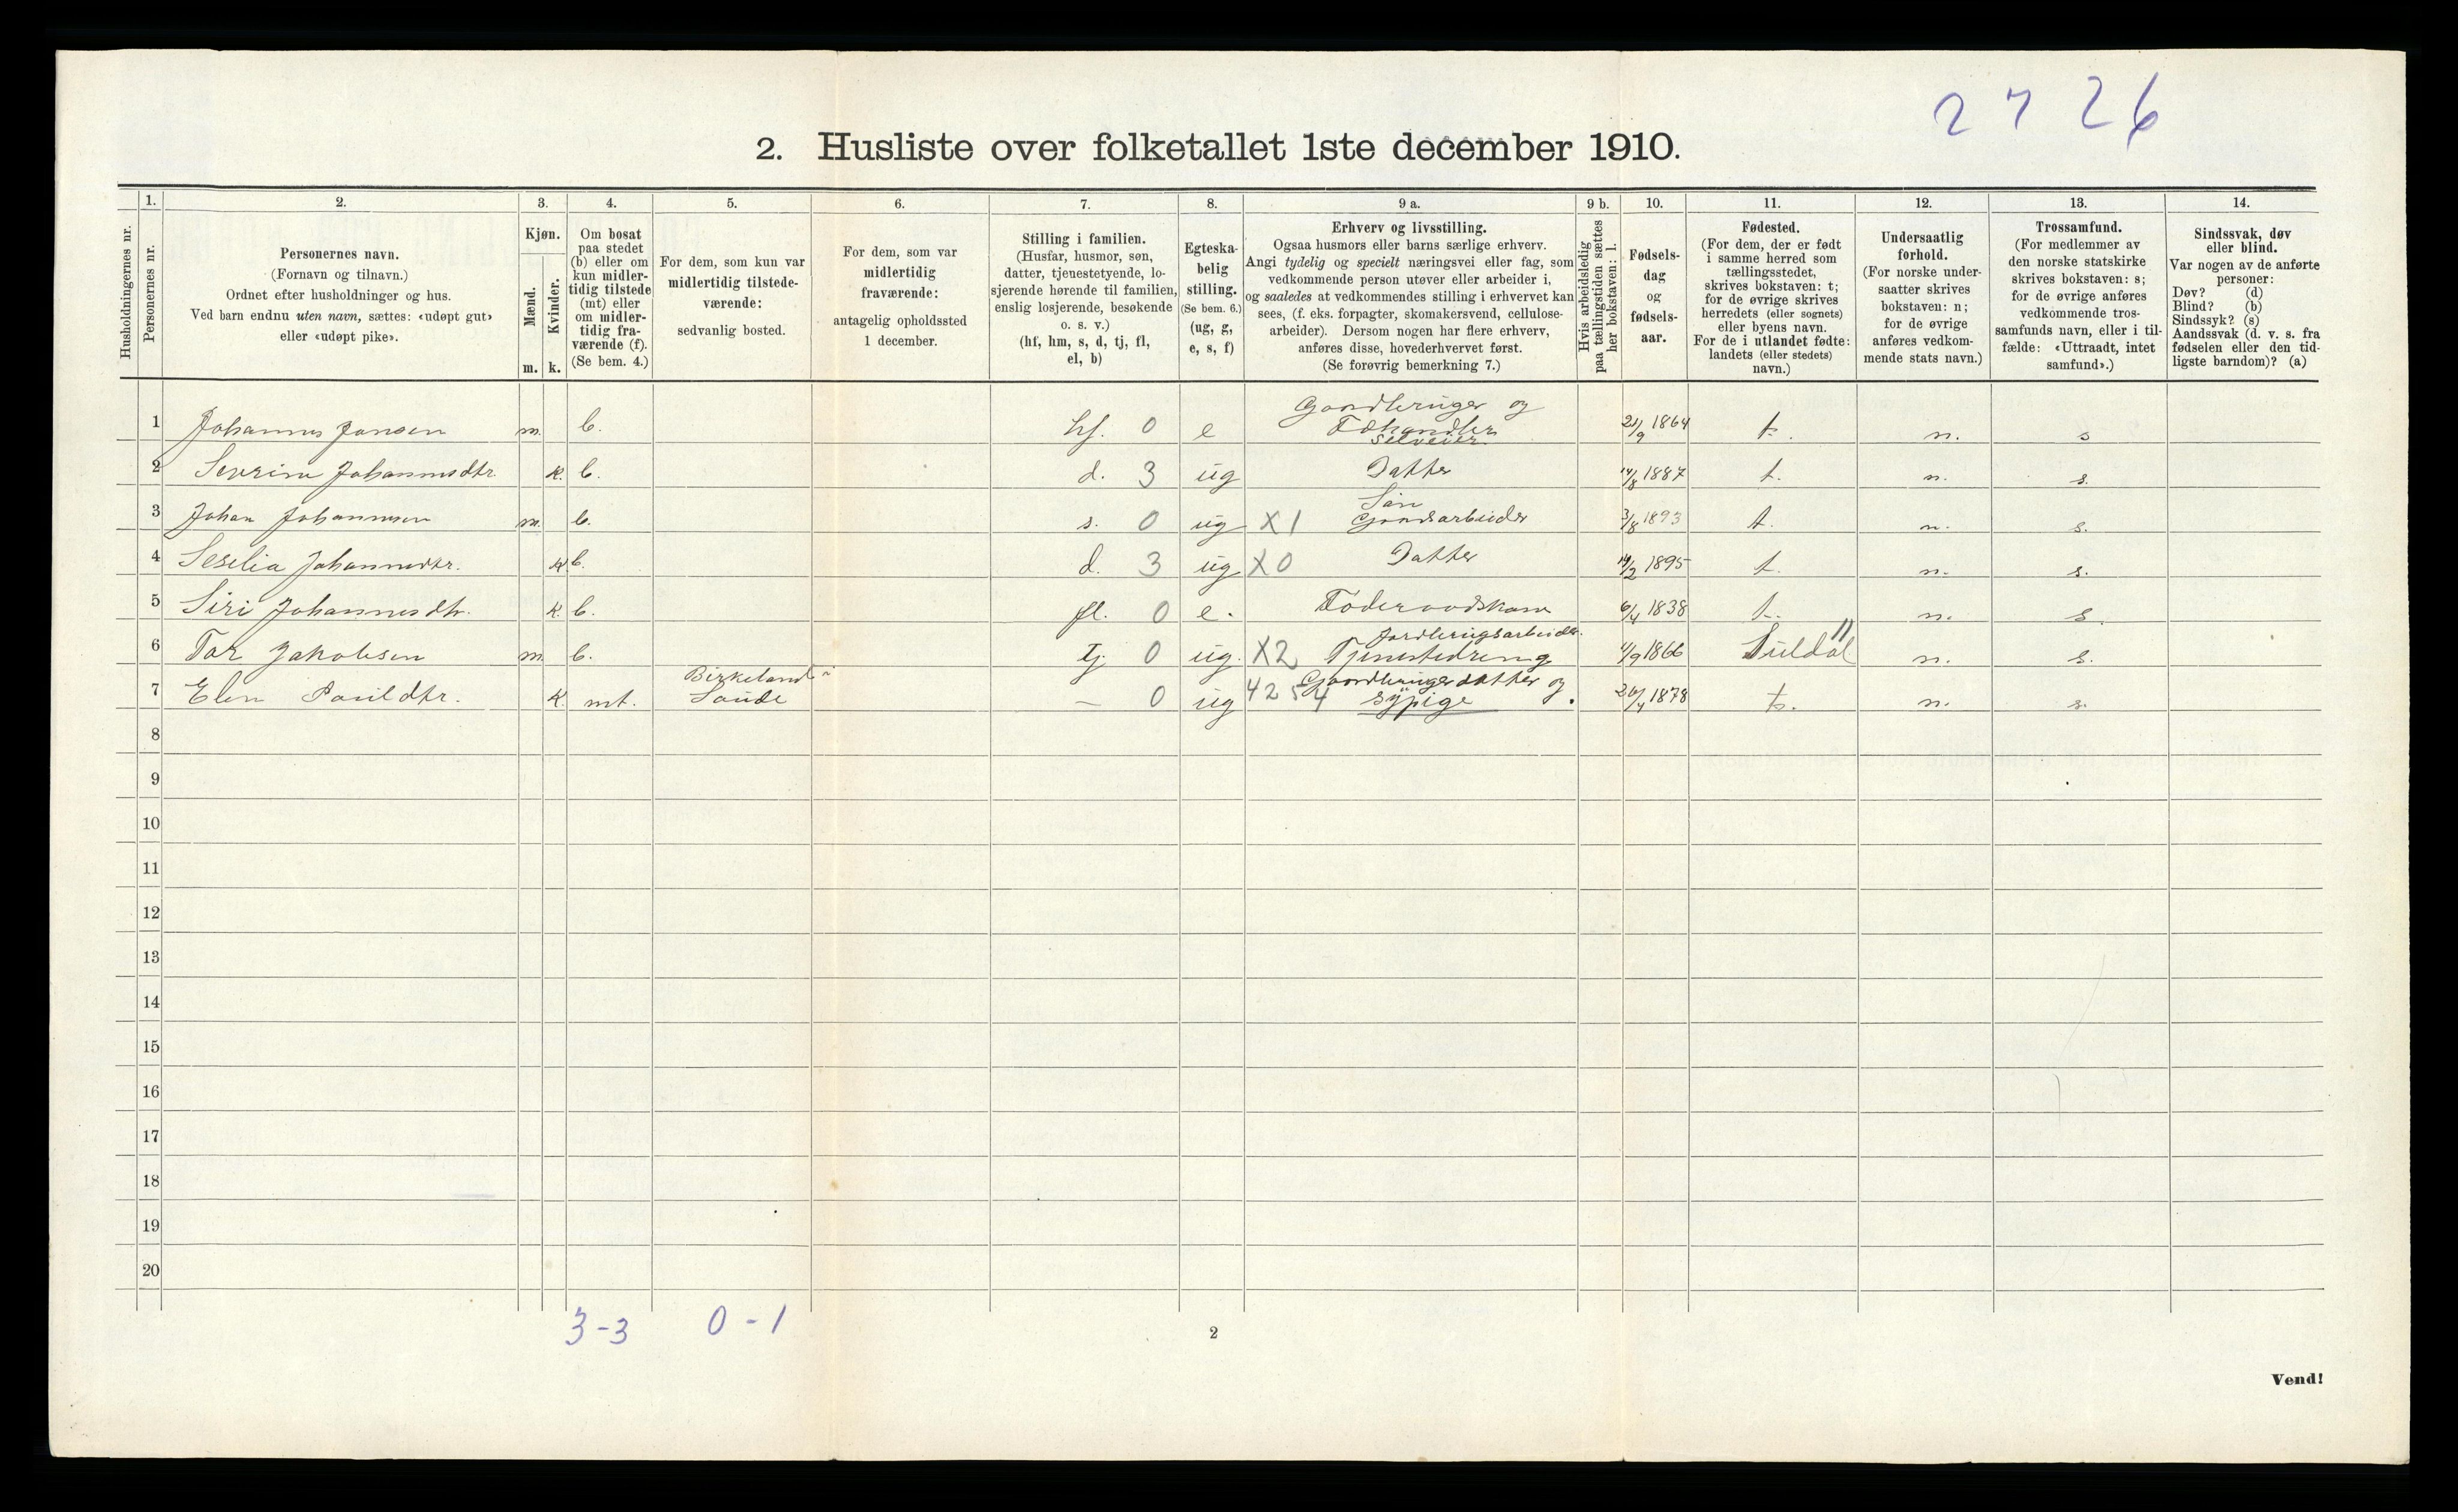 2 7 26
2. Husliste over folketallet 1ste december 1910.
1. 2. 3. 4. 5. 6. 7. 8. 9 a. 9 b. 10. 11. 12. 13. 14.
Husholdningernes nr.
Personernes nr.
Personernes navn.
(Fornavn og tilnavn.)
Ordnet efter husholdninger og hus.
Ved barn endnu uten navn, sættes: «udøpt gut»
eller «udøpt pike».
Kjøn.
Mænd.
Kvinder.
m. k.
Om bosat
paa stedet
(b) eller om
kun midler-
tidig tilstede
(mt) eller
om midler-
tidig fra-
værende (f).
(Se bem. 4.)
For dem, som kun var
midlertidig tilstede-
værende:
sedvanlig bosted.
For dem, som var
midlertidig
fraværende:
antagelig opholdssted
1 december.
Stilling i familien.
(Husfar, husmor, søn,
datter, tjenestetyende, lo-
sjerende hørende til familien,
enslig losjerende, besøkende
o. s. v.)
(hf, hm, s, d, tj, fl,
el, b)
Egteska-
belig
stilling.
(Se bem. 6.)
(ug, g,
e, s, f)
Erhverv og livsstilling.
Ogsaa husmors eller barns særlige erhverv.
Angi tydelig og specielt næringsvei eller fag, som
vedkommende person utøver eller arbeider i,
og saaledes at vedkommendes stilling i erhvervet kan
sees, (f. eks. forpagter, skomakersvend, cellulose-
arbeider). Dersom nogen har flere erhverv,
anføres disse, hovederhvervet først.
(Se forøvrig bemerkning 7.)
Hvis arbeidsledig
paa tællingstiden sættes
her bokstaven: l.
Fødsels-
dag
og
fødsels-
aar.
Fødested.
(For dem, der er født
i samme herred som
tællingsstedet,
skrives bokstaven: t;
for de øvrige skrives
herredets (eller sognets)
eller byens navn.
For de i utlandet fødte:
landets (eller stedets)
navn.)
Undersaatlig
forhold.
(For norske under-
saatter skrives
bokstaven: n;
for de øvrige
anføres vedkom-
mende stats navn.)
Trossamfund.
(For medlemmer av
den norske statskirke
skrives bokstaven: s;
for de øvrige anføres
vedkommende tros-
samfunds navn, eller i til-
fælde: «Uttraadt, intet
samfund».)
Sindssvak, døv
eller blind.
Var nogen av de anførte
personer:
Døv? (d)
Blind? (b)
Sindssyk? (s)
Aandssvak (d. v. s. fra
fødselen eller den tid-
ligste barndom)? (a)
Gaardbruger og
1 Johannes Jonsen m. b. hf. 0 e 1864 t. n. s
Selveier
2 Severine Johannesdtr. k. b. d. 3 ug Datter 14/8 1887 t. n. s.
Søn
3 Johan Johannesen m. b. s. 0 ug X1 Gaardsarbeider 3/8 1893 t. n. s.
4 Seselia Johannesdtr. k b. d. 3 ug X0 Datter 1895 t. n. s.
5 Siri Johannesdtr. k. b. fl. 0 e. Føderaadskone 6/4 1838 t. n. s.
Jordbrugsarbeider.
6 Tor Jakobsen m. b. tj 0 ug. X2 Tjenestedreng 1866 Suldal n. s.
Birkeland i Gaardbrugerdatter og
7 Elen Pouldtr. k. mt. Saude — 0 ug 4254 sypige 1878 t. n. s.
8
9
10
11
12
13
14
15
16
17
18
19
20
3-3 0-1
2
Vend!